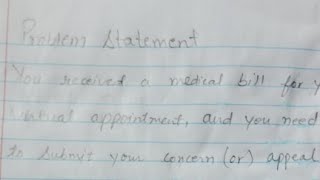 Problem Statement
You received a medical bill for y
appointment, and you need
to submit your concern (or) appeal